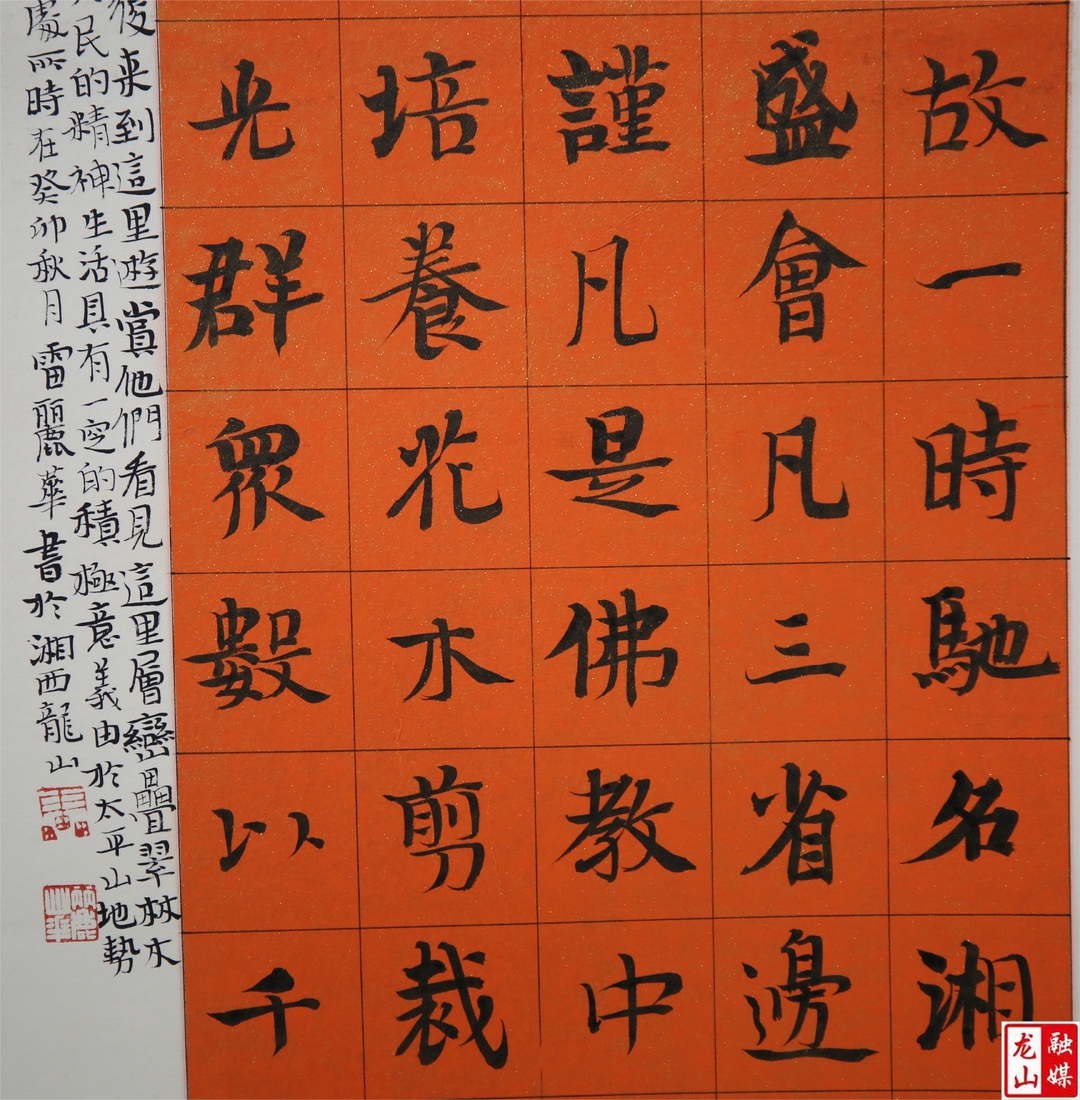 故一時馳名湘
盛會凡三省邊
謹凡是佛教中
培養花木剪裁
光群衆數以千
後来到這里遊賞他們看見這里層巒疊翠林木
民的精神生活具有一定的積極意義由於太平山地勢
處所時在癸卯秋月雷麗華書於湘西龍山
龙山融媒